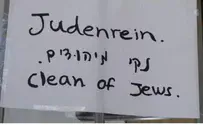 Judenrein.
נקי מיהודים.
Clean of Jews.